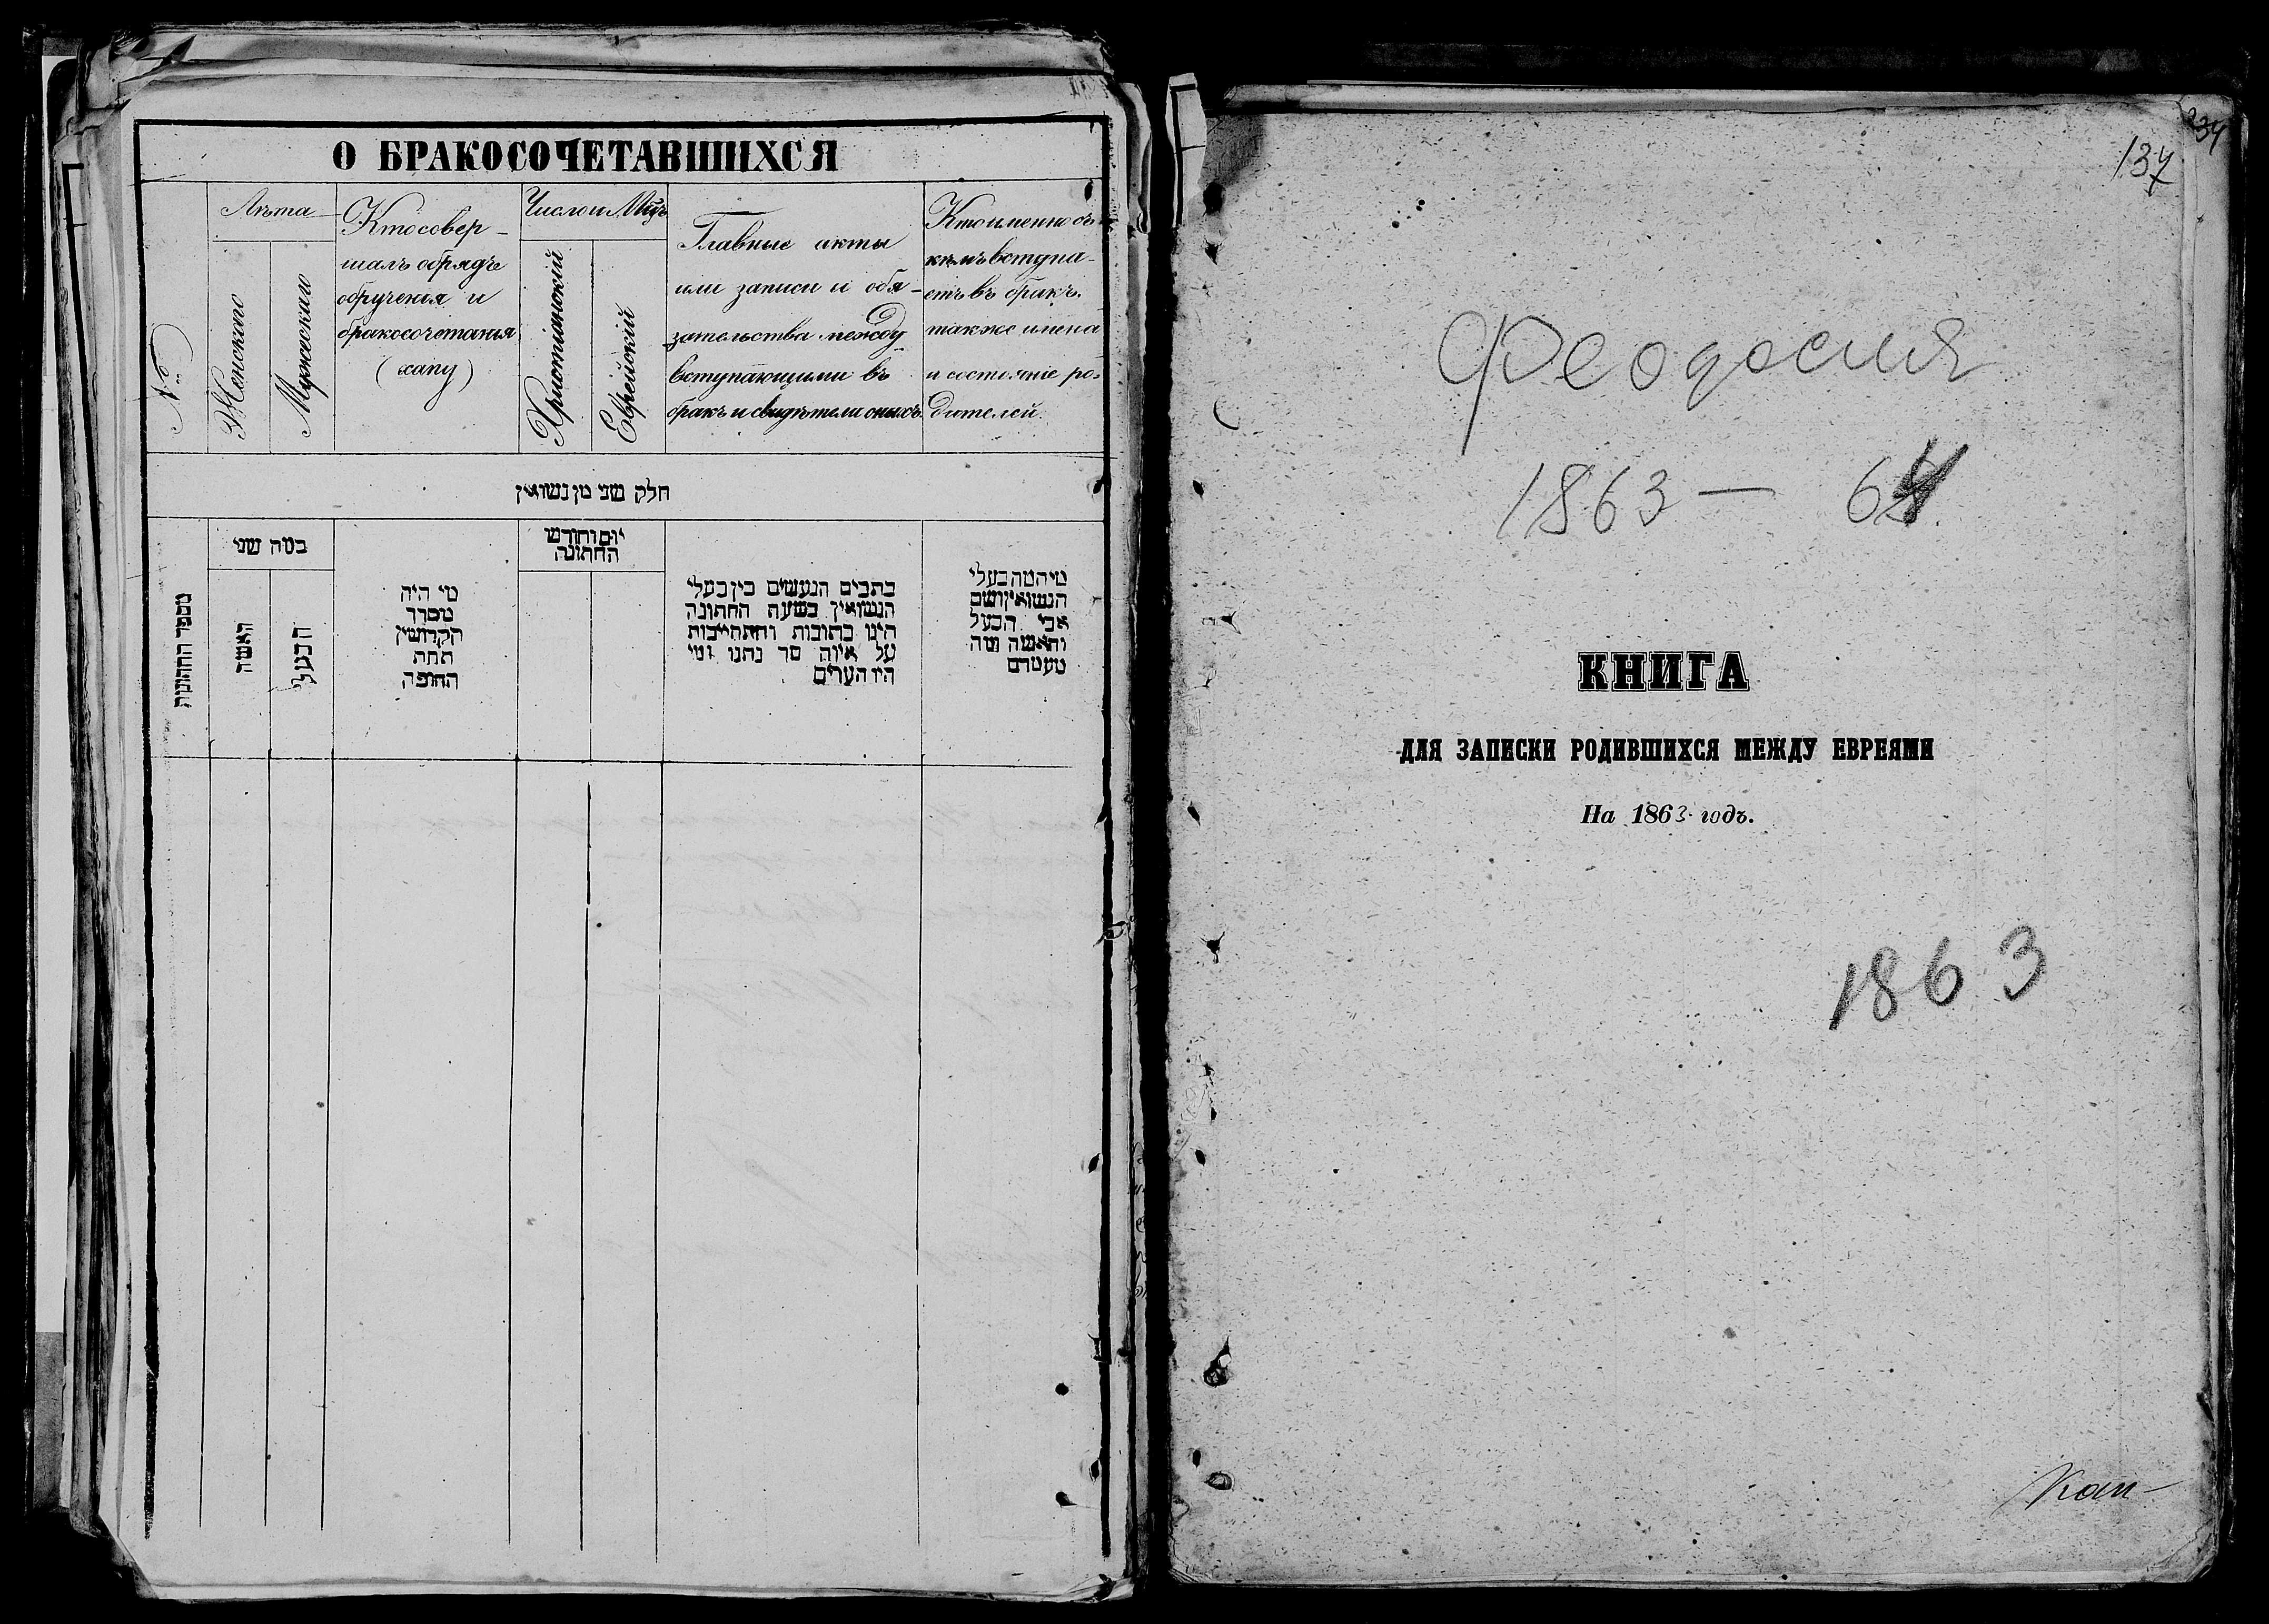 О БРАКОСОЧЕТАВШИХСЯ
№
Лѣта
Женскаго
Мужескаго
Кто совер-
шалъ обрядъ
обрученія и
бракосочетанія
(хапу)
Число и Мѣц
Христіанскій
Еврейскій
Главные акты
или записи и обя-
зательства между
вступающими въ
бракъ и свидѣтели оныхъ.
Кто именно съ
кѣмъ вступа-
етъ въ бракъ.
также имена
и состояніе ро-
дителей.
חלק שני מן נשואין
מספר החתונות
במה שני
האשה
הבעל
מי היה
מסדר
הקדושין
תחת
החופה
יום וחודש
החתונה
כתבים הנעשים בין בעלי
הנשואין בשעת החתונה
הינו כתובות והתחייבות
על איזה סך נתנו ומי
היו הערים
מי המה בעלי
הנשואין ושם
אבי הבעל
והאשה מה
מעמדם
234
137
Феодосия
1863 — 64
КНИГА
ДЛЯ ЗАПИСКИ РОДИВШИХСЯ МЕЖДУ ЕВРЕЯМИ
На 1863 годъ.
1863